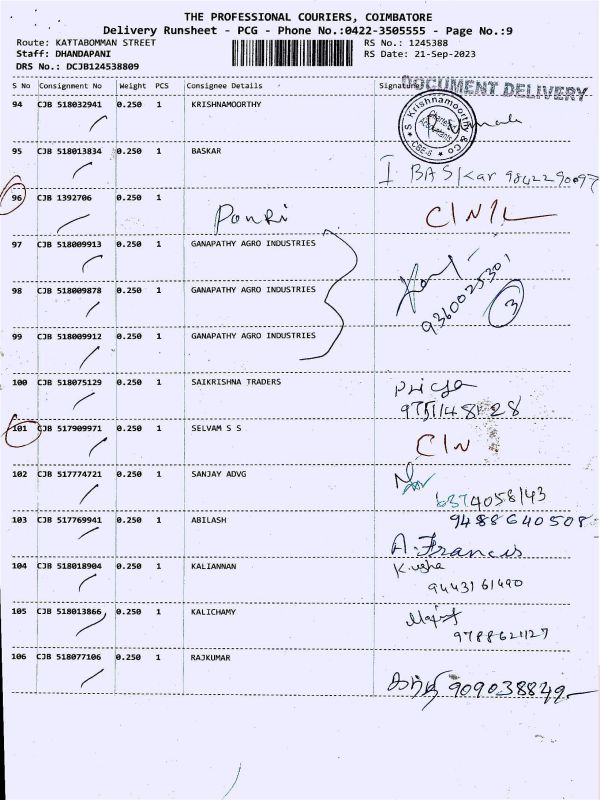 THE PROFESSIONAL COURIERS, COIMBATORE
Delivery Runsheet - PCG - Phone No.:0422-3505555 - Page No.:9
Route: KATTABOMMAN STREET RS No.: 1245388
Staff: DHANDAPANI RS Date: 21-Sep-2023
DRS No.: DCJB124538809
S No Consignment No Weight PCS Consignee Details Signature
DOCUMENT DELIVERY
94 CJB 518032941 0.250 1 KRISHNAMOORTHY
S Krishnamoorthy & Co Chartered Accountants CBE-6
95 CJB 518013834 0.250 1 BASKAR
I BASkar 9842290097
96 CJB 1392706 0.250 1
Ponri C/N/L
97 CJB 518009913 0.250 1 GANAPATHY AGRO INDUSTRIES
98 CJB 518009878 0.250 1 GANAPATHY AGRO INDUSTRIES
9360025301 3
99 CJB 518009912 0.250 1 GANAPATHY AGRO INDUSTRIES
100 CJB 518075129 0.250 1 SAIKRISHNA TRADERS
101 CJB 517909971 0.250 1 SELVAM S S
C/N
102 CJB 517774721 0.250 1 SANJAY ADVG
6374058143
103 CJB 517769941 0.250 1 ABILASH
9488640508
A. Francis
104 CJB 518018904 0.250 1 KALIANNAN
K. usha
9443161490
105 CJB 518013866 0.250 1 KALICHAMY
9788621127
106 CJB 518077106 0.250 1 RAJKUMAR
909038849